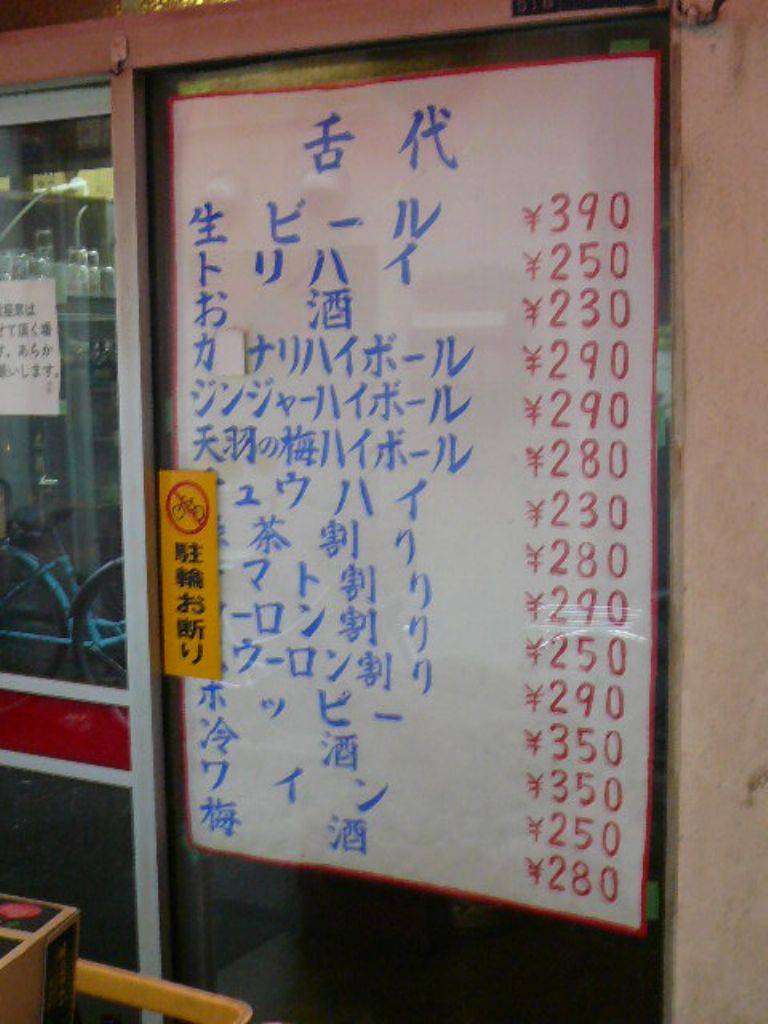 舌代
生ビール ¥390
トリハイ ¥250
お酒 ¥230
カ ナリハイボール ¥290
ジンジャーハイボール ¥290
天羽の梅ハイボール ¥280
ュウハイ ¥230
茶割り ¥280
マト割り ¥290
ーロン割り ¥250
ウーロン割り ¥290
ホッピー ¥350
冷酒 ¥350
ワイン ¥250
梅酒 ¥280
駐輪お断り
席は
せて頂く場
す。あらか
願いします。